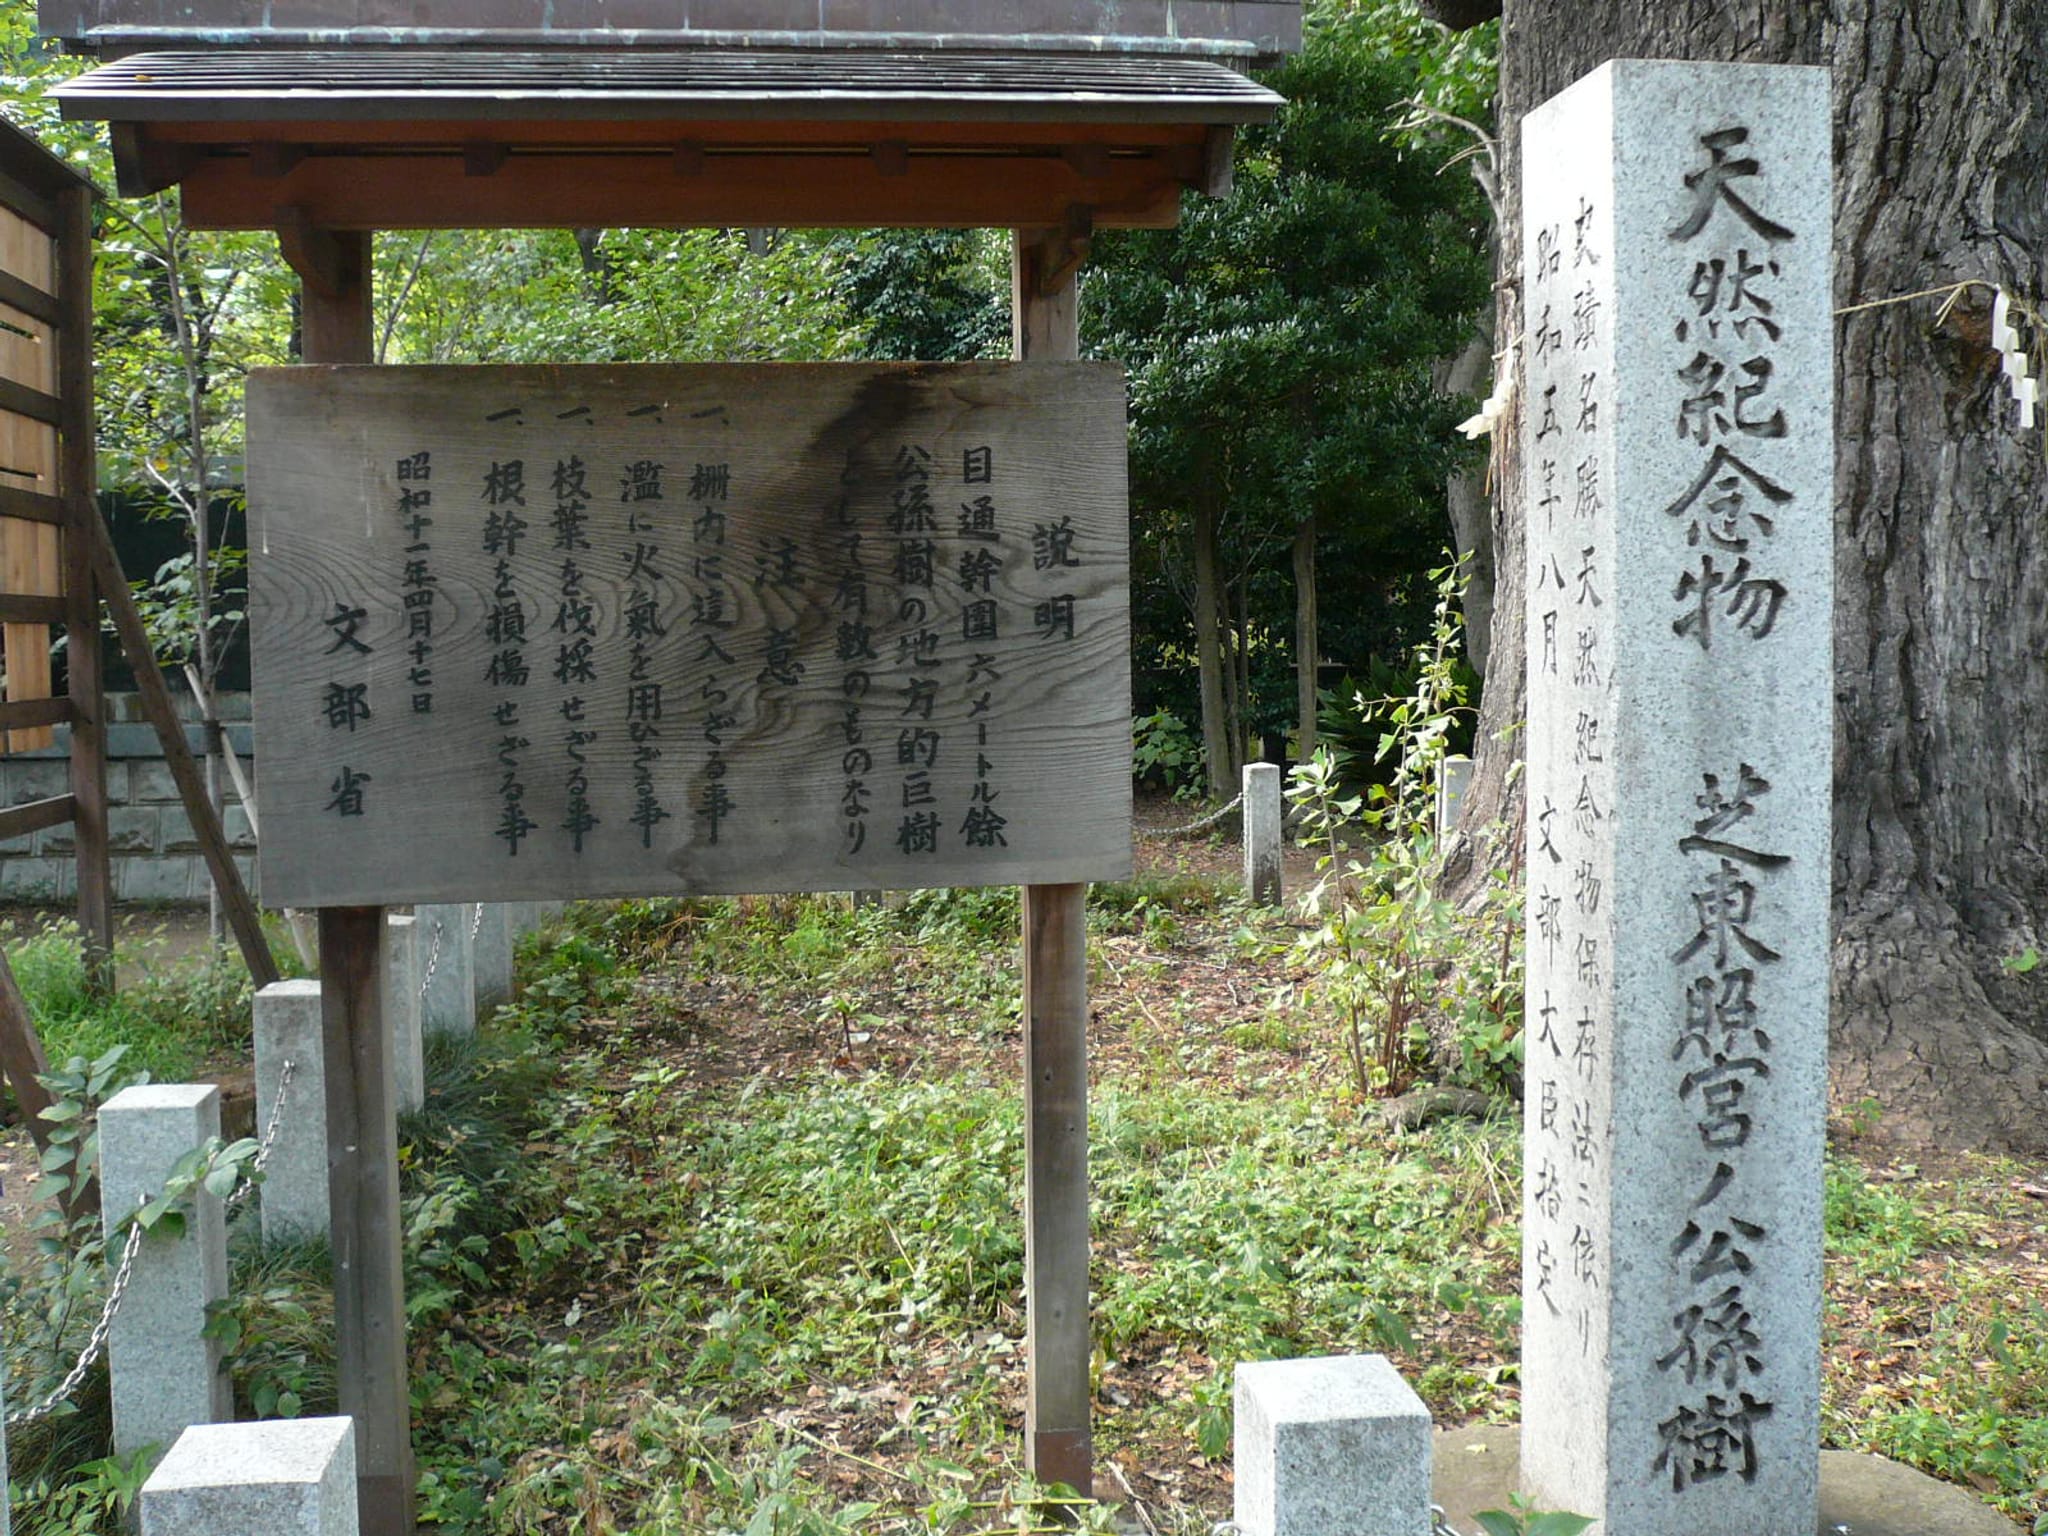 天然紀念物 芝東照宮ノ公孫樹
史蹟名勝天然紀念物保存法ニ依リ
昭和五年八月 文部大臣指定
説明
目通幹圍六メートル餘
公孫樹の地方的巨樹
として有数のものなり
注意
一、柵内に這入らざる事
一、濫に火氣を用ひざる事
一、枝葉を伐採せざる事
一、根幹を損傷せざる事
昭和十一年四月十七日
文部省